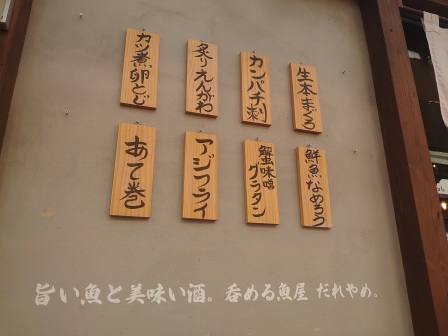 カツ煮卵とじ
炙りえんがわ
カンパチ刺
生本まぐろ
あて巻
アジフライ
蟹味噌グラタン
鮮魚なめろう
旨い魚と美味い酒。呑める魚屋 だれやめ。